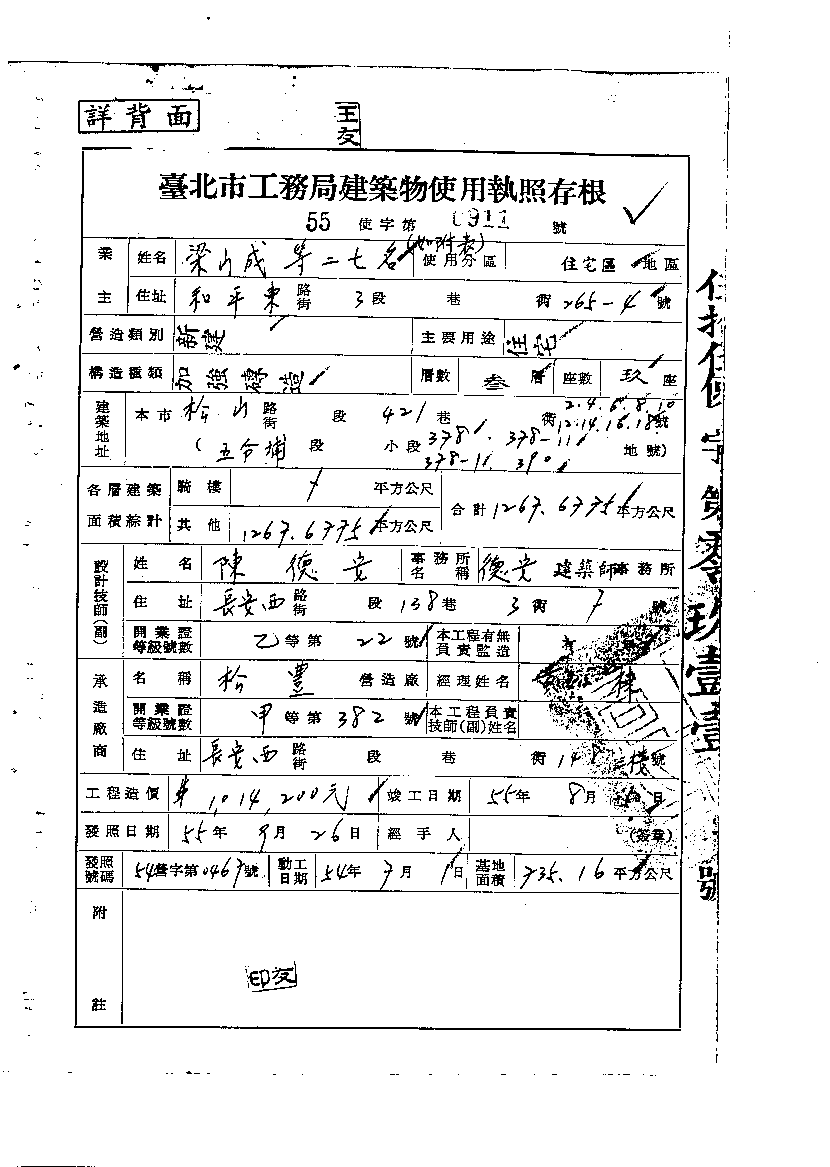 詳背面
王友
臺北市工務局建築物使用執照存根
55 使字第 0911 號
業主 姓名 梁山成 等二七名(如附表) 使用分區 住宅區 地區
住址 和平東 路街 3段 巷 衖 265-4 號
營造類別 新建 主要用途 住宅
構造種類 加強磚造 層數 叁 層 座數 玖 座
建築地址 本市 松山 路街 段 421 巷 衖 2.4.6.8.10 12.14.16.18 號
(五分埔 段 小段 378 378-11 378-1 390 地號)
各層建築面積綜計 騎樓 平方公尺 合計 1267.6775 平方公尺
其他 1267.6775 平方公尺
設計技師(副) 姓名 陳德安 事務所名稱 德安 建築師事務所
住址 長安西 路街 段 138 巷 3 衖 7 號
開業證等級號數 乙 等第 22 號 本工程有無負責監造
承造廠商 名稱 松豐 營造廠 經理姓名 林
開業證等級號數 甲 等第 382 號 本工程負責技師(副)姓名
住址 長安西 路街 段 巷 衖 14 號
工程造價 1,014,200元 竣工日期 55年 8月 日
發照日期 55年 9月 26日 經手人 (簽章)
發照號碼 54營字第0467號 動工日期 54年 7月 1日 基地面積 735.16 平方公尺
附註
印友
字第零玖壹壹號